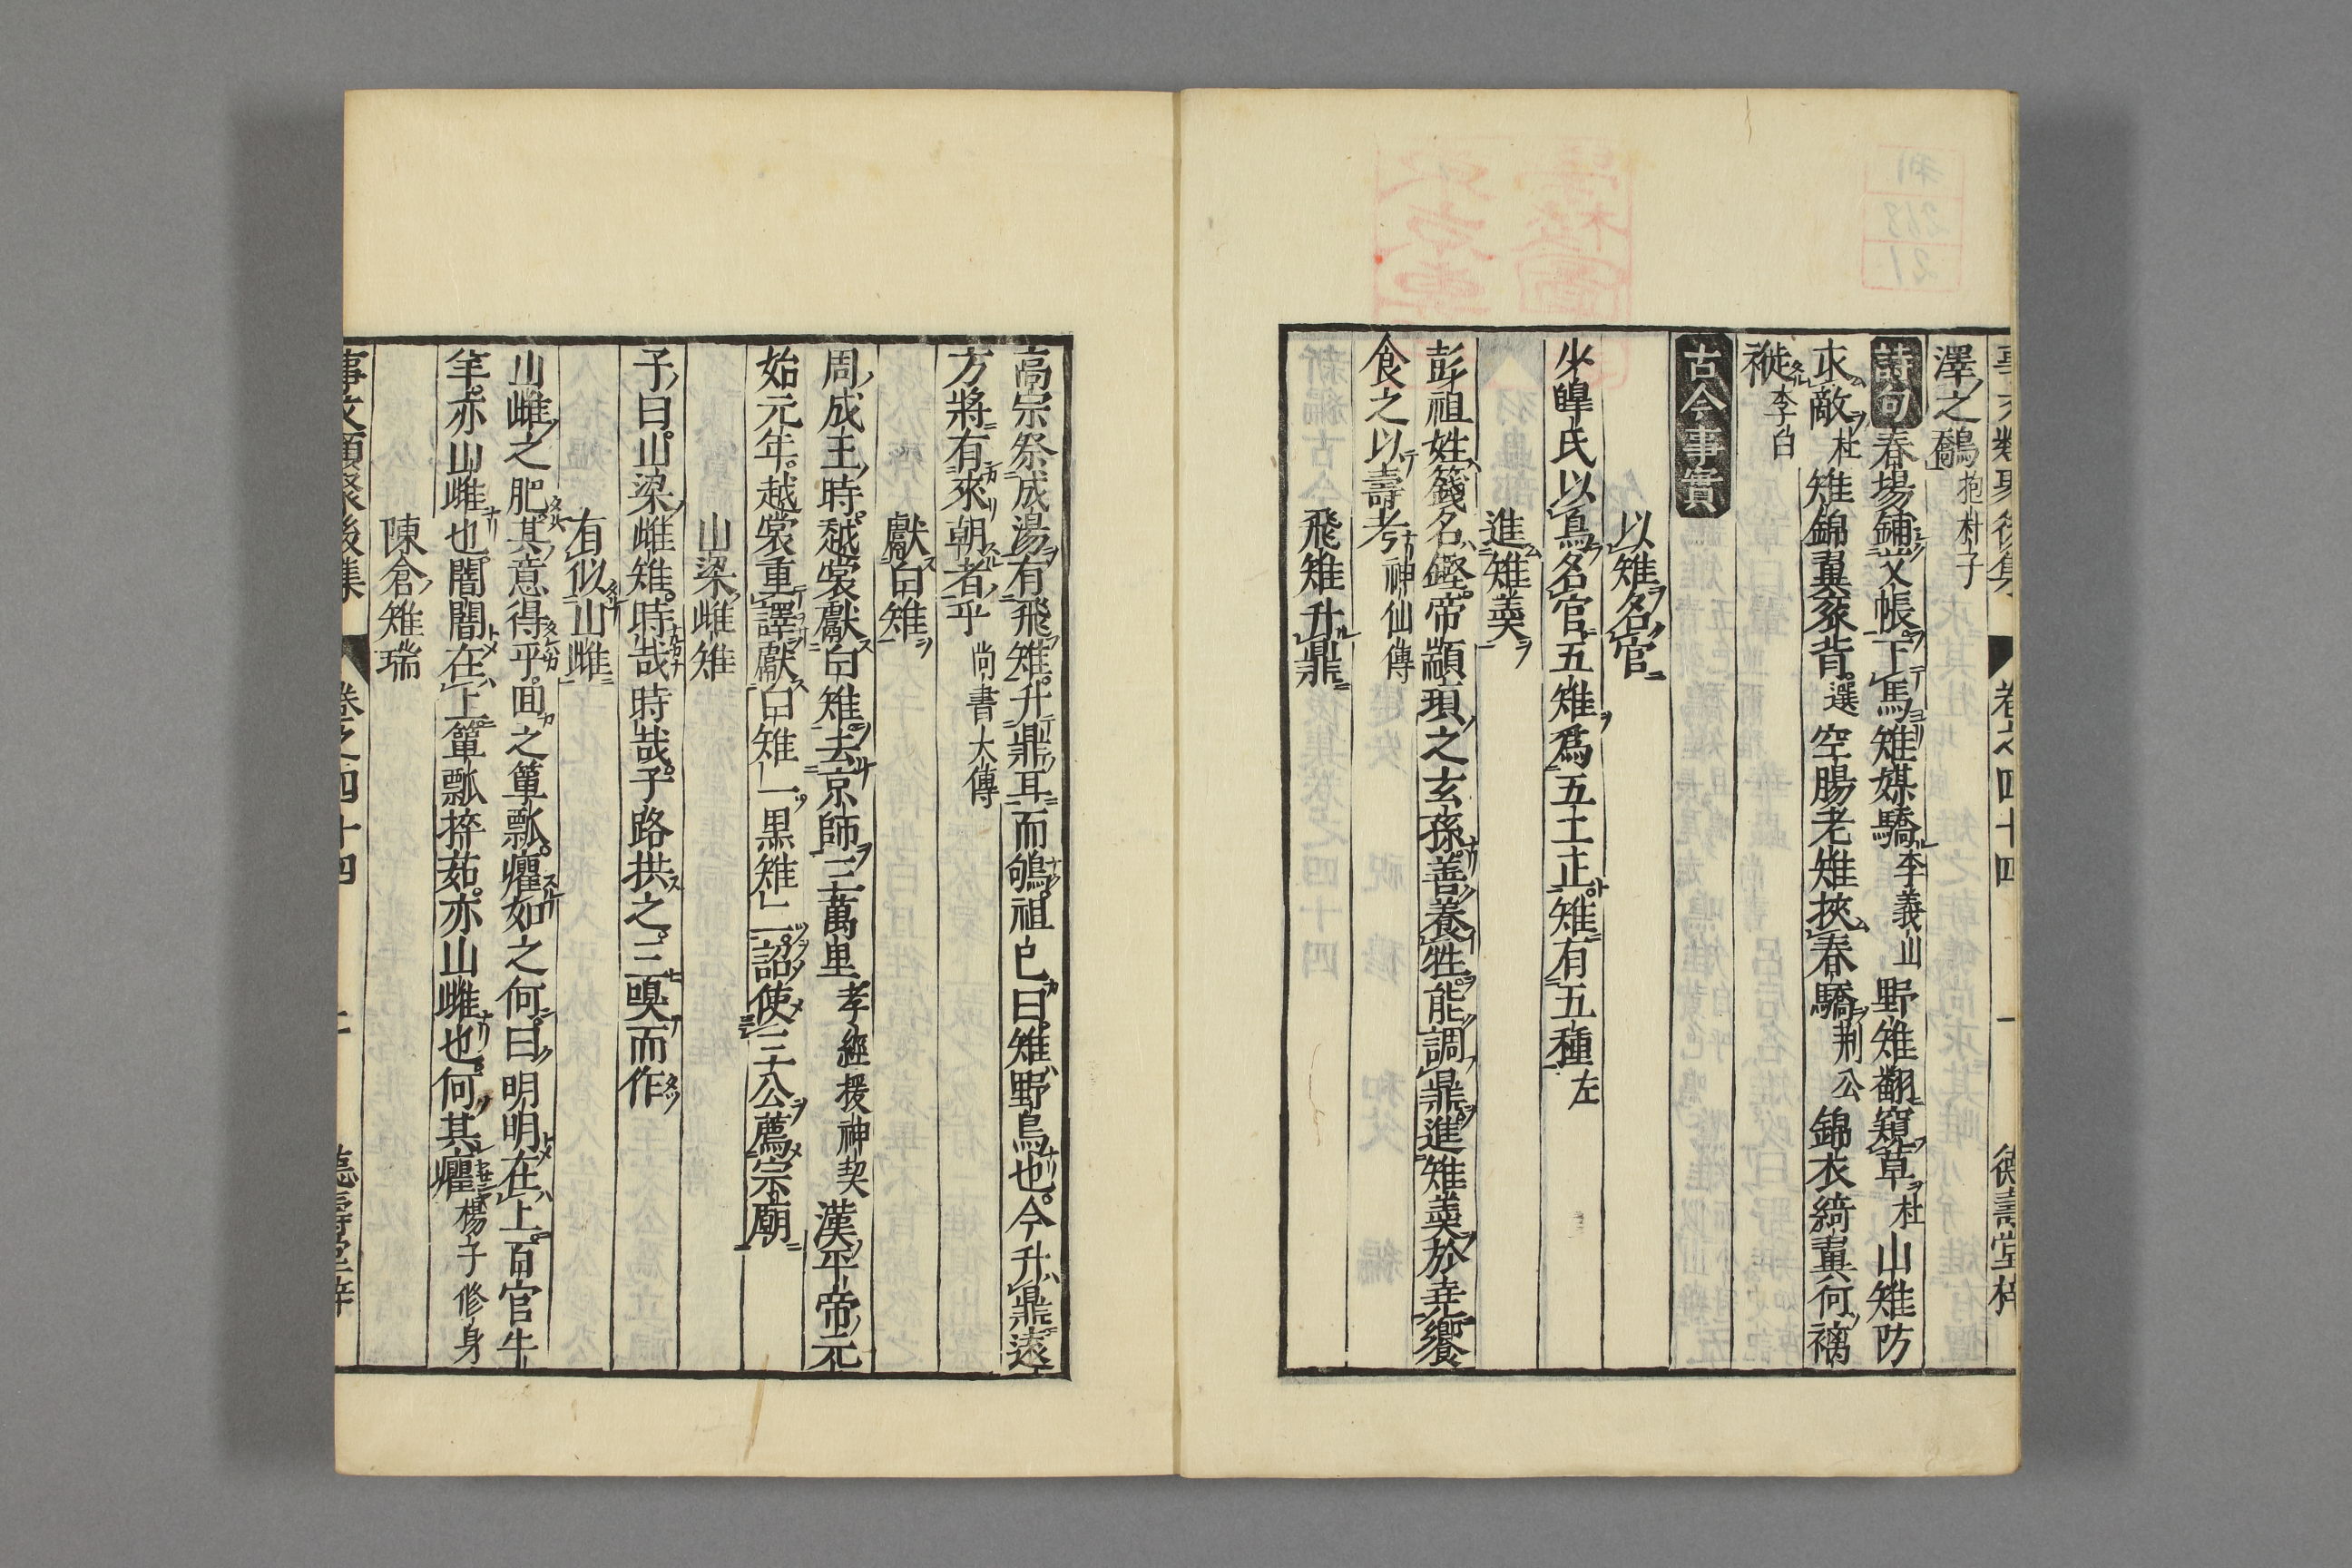 事文類聚後集 卷之四十四 一 德壽堂梓
澤之鷮抱朴子
詩句 春場鋪艾帳下馬雉媒驕李義山 野雉翻窺草杜 山雉防
求敵杜 雉錦翼豕背選 空腸老雉挾春驕荆公 錦衣綺翼何䙰
褷李白
古今事實
以雉名官
少皥氏以鳥名官五雉爲五工正雉有五種左
進雉羮
彭祖姓籛名鏗帝顓頊之玄孫善養性能調鼎進雉羮於堯饗
食之以壽考神仙傳
飛雉升鼎
高宗祭成湯有飛雉升鼎耳而鴝祖已曰雉野鳥也今升鼎遠
方將有來朝者乎尚書大傳
獻白雉
周成王時越裳獻白雉去京師三萬里孝經援神契 漢平帝元
始元年越裳重譯獻白雉一黒雉二詔使三公薦宗廟
山梁雌雉
子曰山梁雌雉時哉時哉子路拱之三嗅而作
有似山雌
山雌之肥其意得乎囬之簞瓢癯如之何曰明明在上百官牛
羊亦山雌也闇闇在上簞瓢捽茹亦山雌也何其癯楊子修身
陳倉雉瑞
事文類聚後集 卷之四十四 二 德壽堂梓